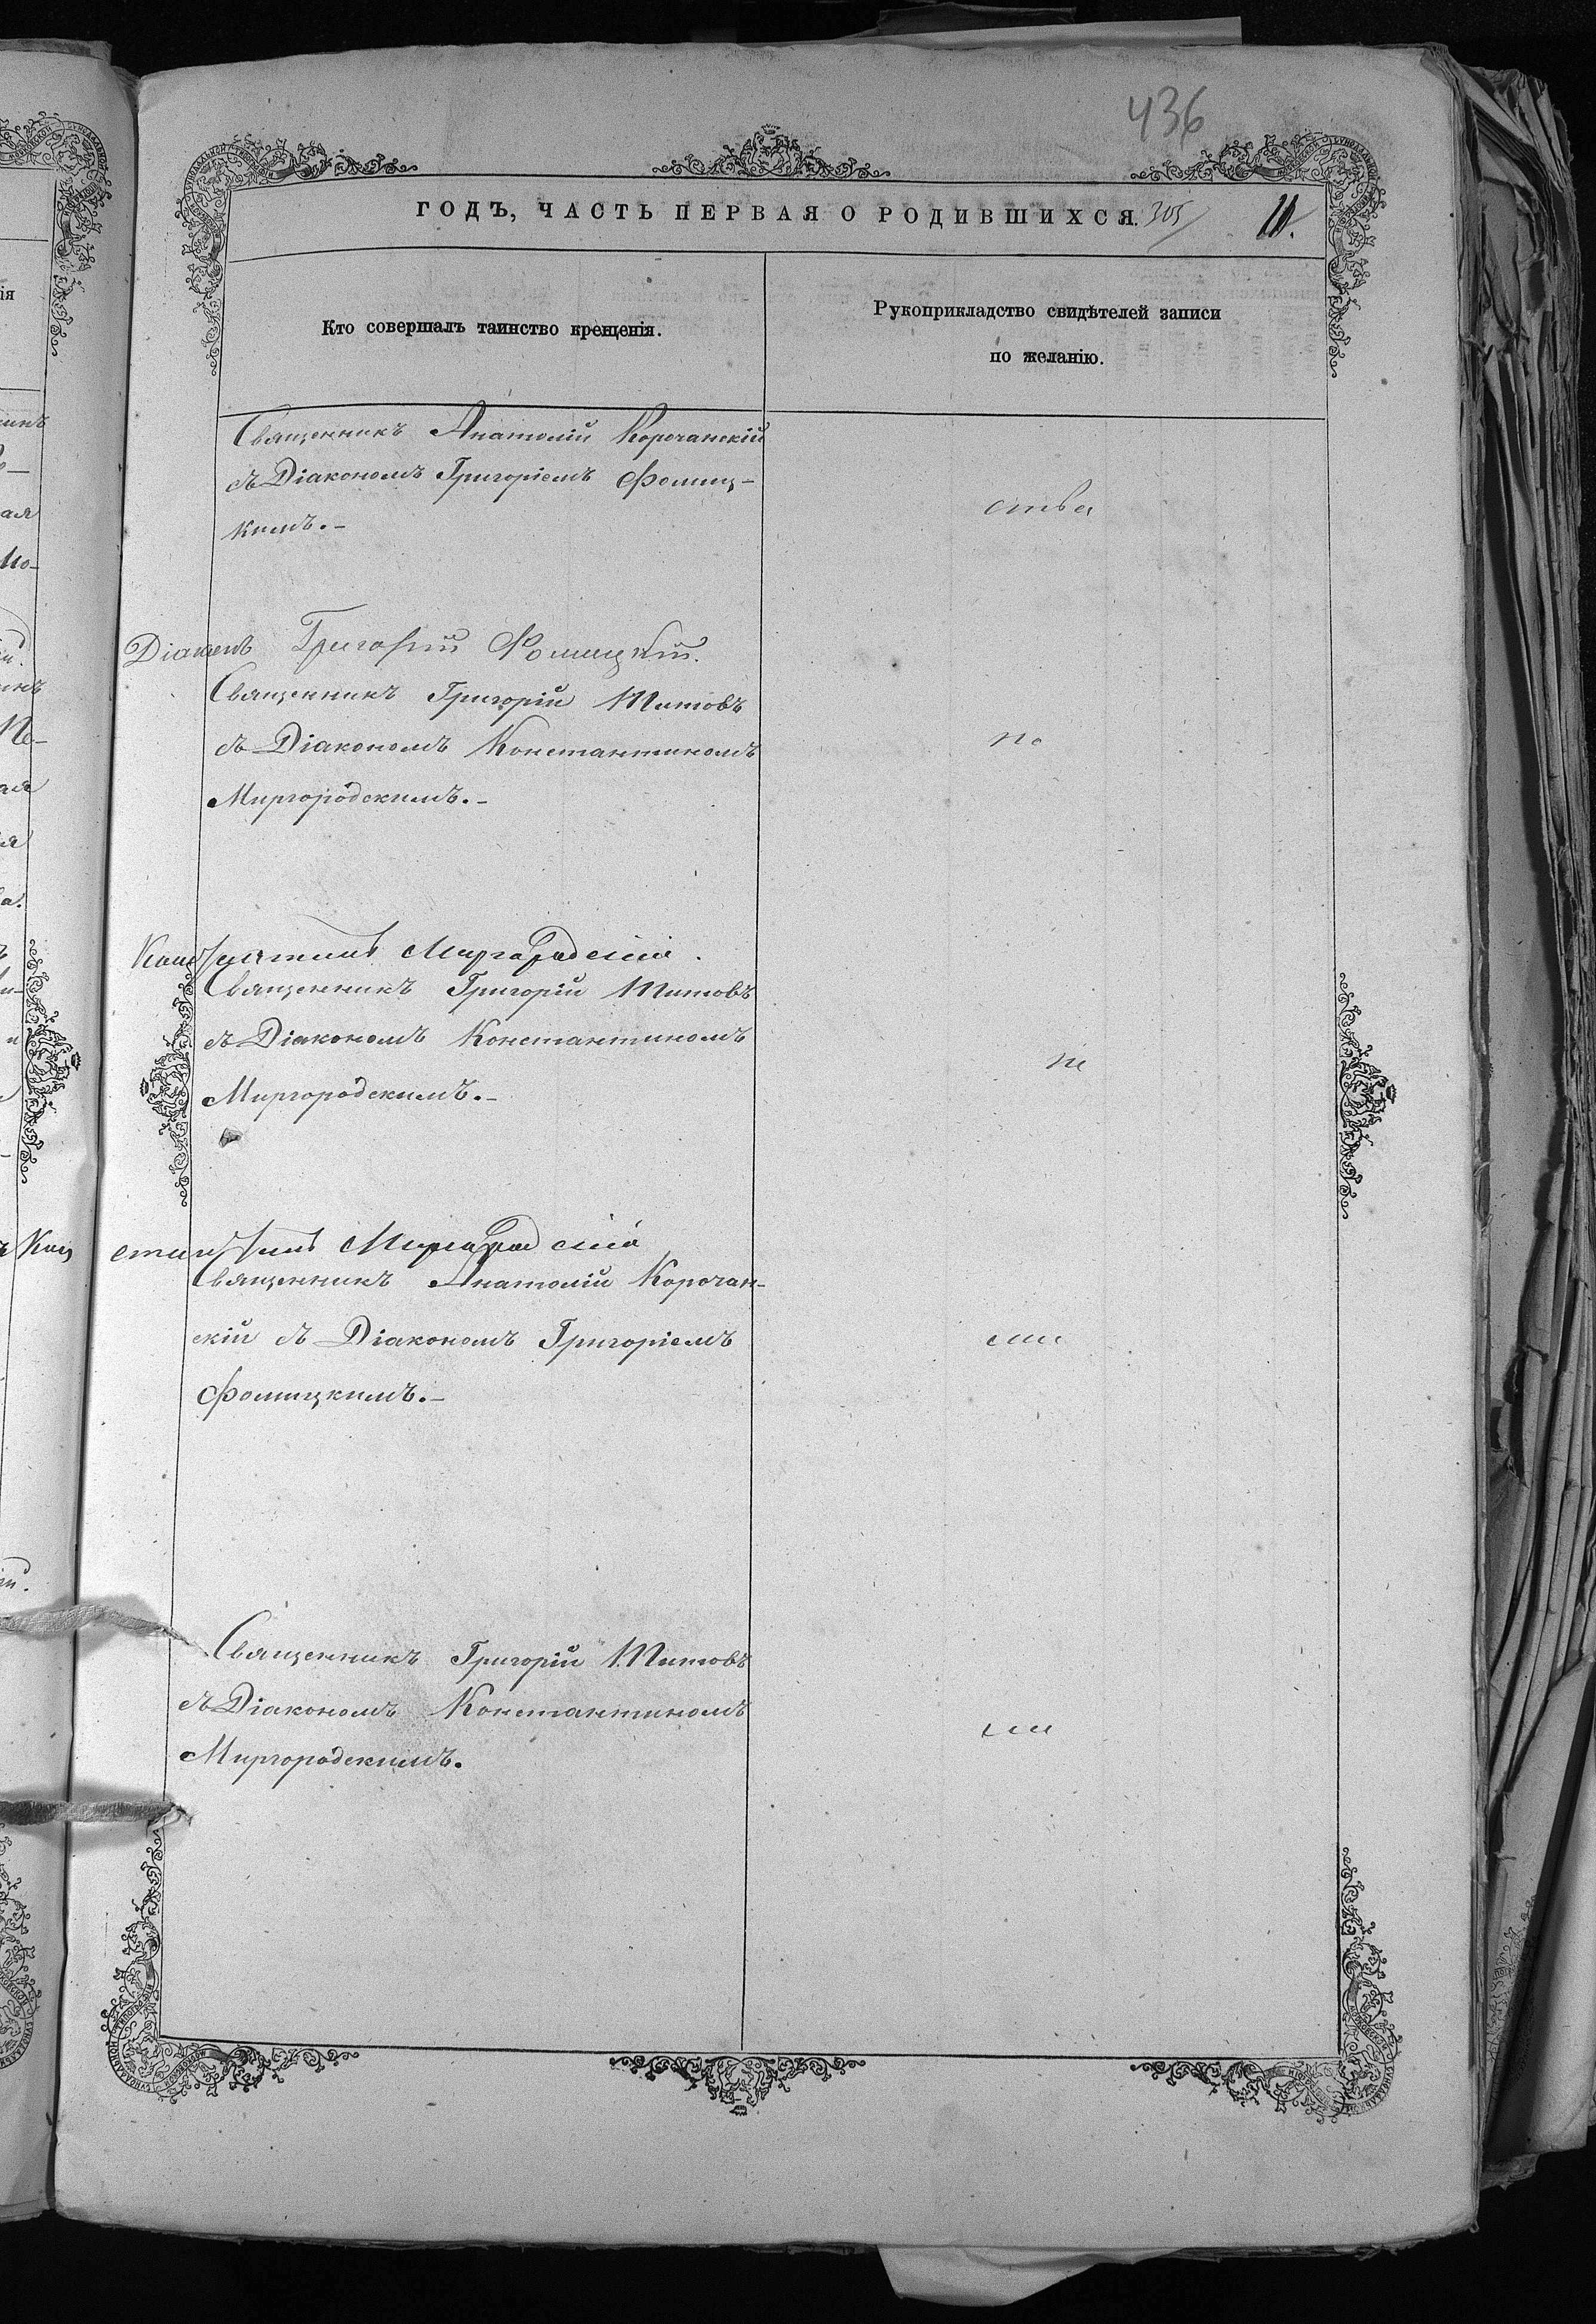 436
ГОДЪ, ЧАСТЬ ПЕРВАЯ О РОДИВШИХСЯ. 305 11.
Кто совершалъ таинство крещенія.
Рукоприкладство свидѣтелей записи
по желанію.
Священникъ Анатолій Корочанскій
съ Діакономъ Григоріемъ Фомиц-
кимъ.-
ства
Діаконъ Григорій Фомицкій.
Священникъ Григорій Титовъ
съ Діакономъ Константиномъ
Миргородскимъ.-
по
Константинъ Миргородскій.
Священникъ Григорій Титовъ
съ Діакономъ Константиномъ
Миргородскимъ.-
Константинъ Миргородскій
Священникъ Анатолій Корочан-
скій съ Діакономъ Григоріемъ
Фомицкимъ.-
Священникъ Григорій Титовъ
съ Діакономъ Константиномъ
Миргородскимъ.